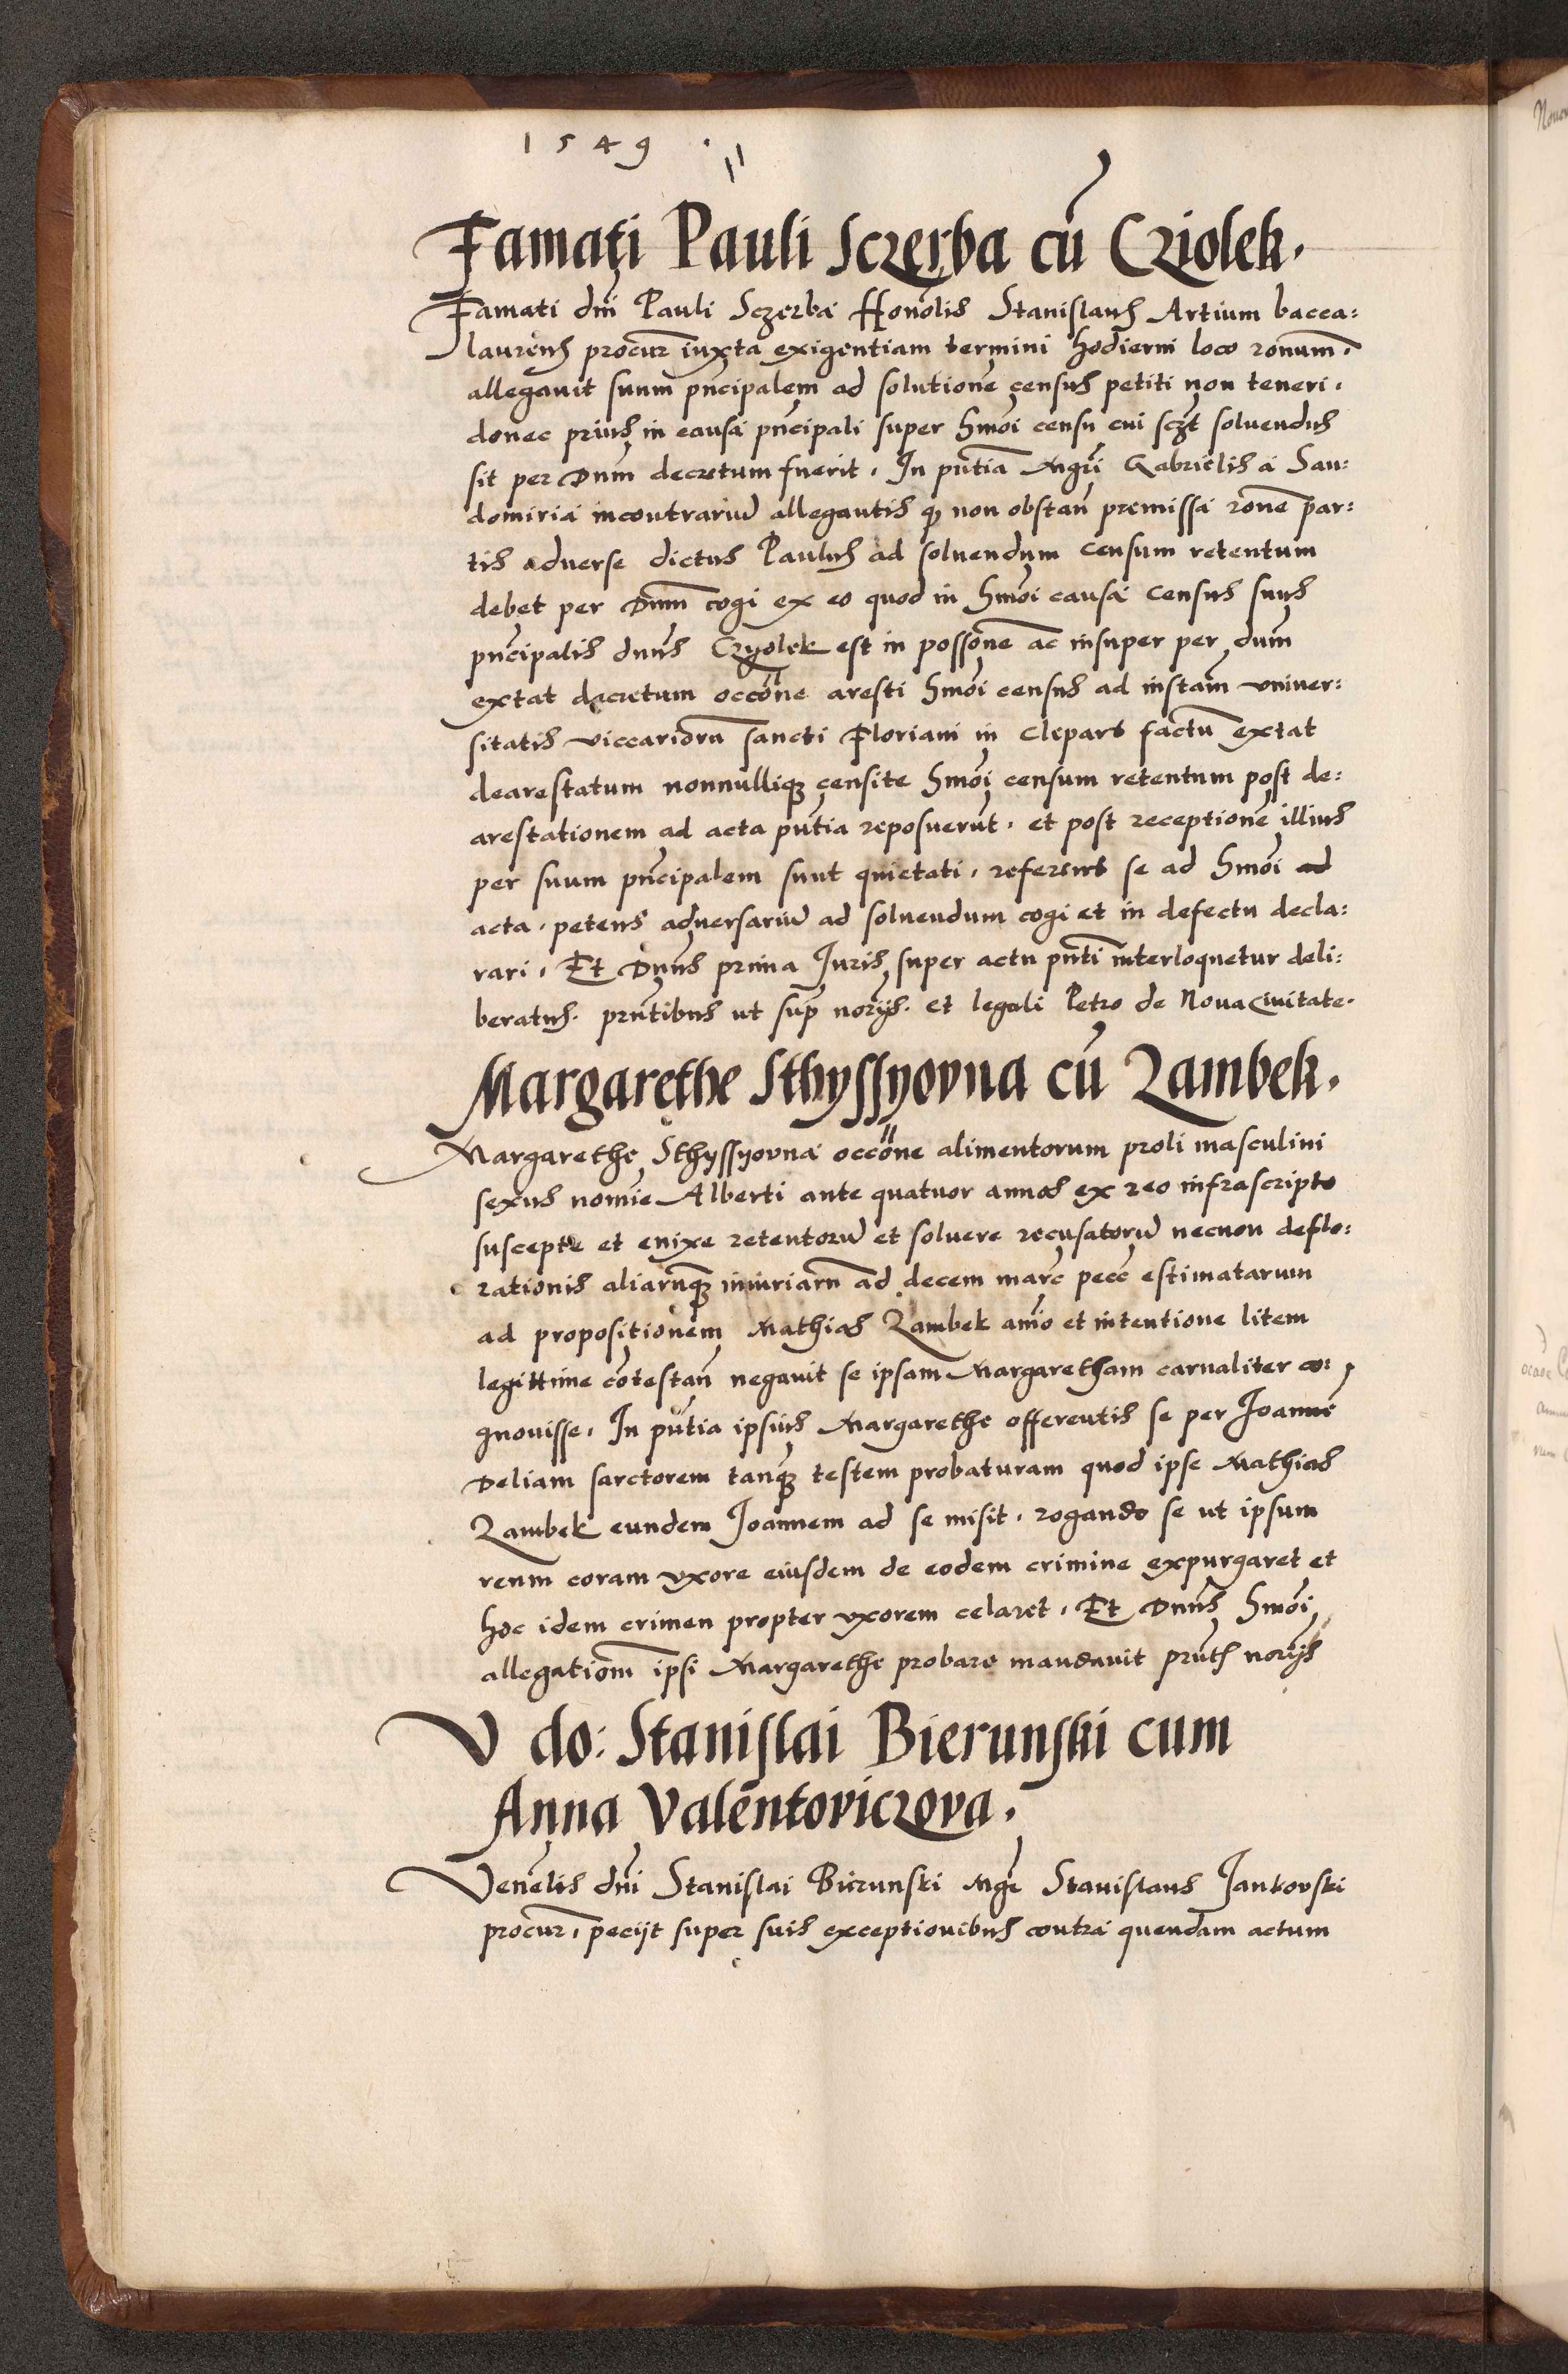 1549
Famati Pauli Sczerba cū Cziolek.
Famati dn̄i Pauli Sczerba Honōlis Stanislaus Artium bacca:
laureus procur̄ iuxta exigentiam termini hodierni loco rōnum.
allegauit suum prīncipalem ad solutionē census petiti non teneri.
donec prius in causa prīncipali super hmōi censu cui sczt̄ soluendus
sit per Dnūm decretum fuerit. In pn̄tia Mgrī Gabrielis a San:
domiria incontrariū allegantis q̄ non obstan̄ premissa rōne par:
tis aduerse dictus Paulus ad soluendum censum retentum
debet per Dnūm cogi ex eo quod in hmōi causa census suus
prīncipalis dnūs Czyolek est in possōne ac insuper per dnūm
extat decretum occōne aresti hmōi census ad instam̄ vniuer:
sitatis viccariorū sancti Floriani in Clepart factū extat
dearestatum nonnullique censite hmōi censum retentum post de:
arestationem ad acta pn̄tia reposuerūt. et post receptionē illius
per suum prīncipalem sunt quietati. referens se ad hmōi ad
acta. petens aduersariū ad soluendum cogi et in defectu decla:
rari. Et Dnūs prima Juris super actu pn̄ti interloquetur deli:
beratus. prn̄tibus ut sup̄ norijs. et legali Petro de Nouaciuitate.
Margarethe Sthyssyovna cū Zambek.
Margarethe Sthyssyovna occōne alimentorum proli masculini
sexus nomīe Alberti ante quatuor annos ex reo infrascripto
suscepte et enixe retentorū et soluere recusatorū necnon deflo:
rationis aliarūque iniuriarū ad decem marc̄ pecc̄ estimatarum
ad propositionem Mathias Zambek anīo et intentione litem
legittime cōtestan̄ negauit se ipsam Margaretham carnaliter co:
gnouisse. In pn̄tia ipsius Margarethe offerentis se per Joannē
Deliam sarctorem tanq̄ testem probaturam quod ipse Mathias
Zambek eundem Joannem ad se misit. rogando se ut ipsum
reum coram vxore eiusdem de eodem crimine expurgaret et
hoc idem crimen propter vxorem celaret. Et Dnūs hmōi
allegatiōnm ipsi Margarethe probare mandauit prn̄ts norijs
V do: Stanislai Bierunski cum
Anna Valentoviczova.
Venēlis dn̄i Stanislai Bierunski Mgr̄ Stanislaus Jankovski
procur̄. pecijt super suis exceptionibus contra quendam actum